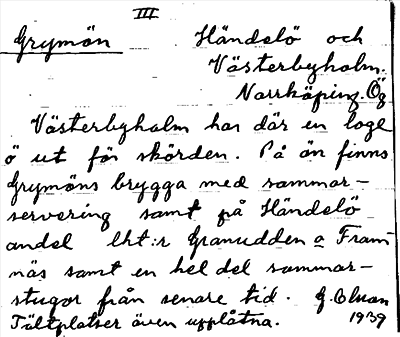 III
Grymön Händelö och
Västerbyholm.
Norrköping. Ög
Västerbyholm har där en loge
ö ut för skörden. På ön finns
Grymöns brygga med sommar-
servering samt på Händelö
andel lht:r Granudden o Fram-
näs samt en hel del sommar-
stugor från senare tid. G. Olson
Tältplatser även upplåtna. 1939